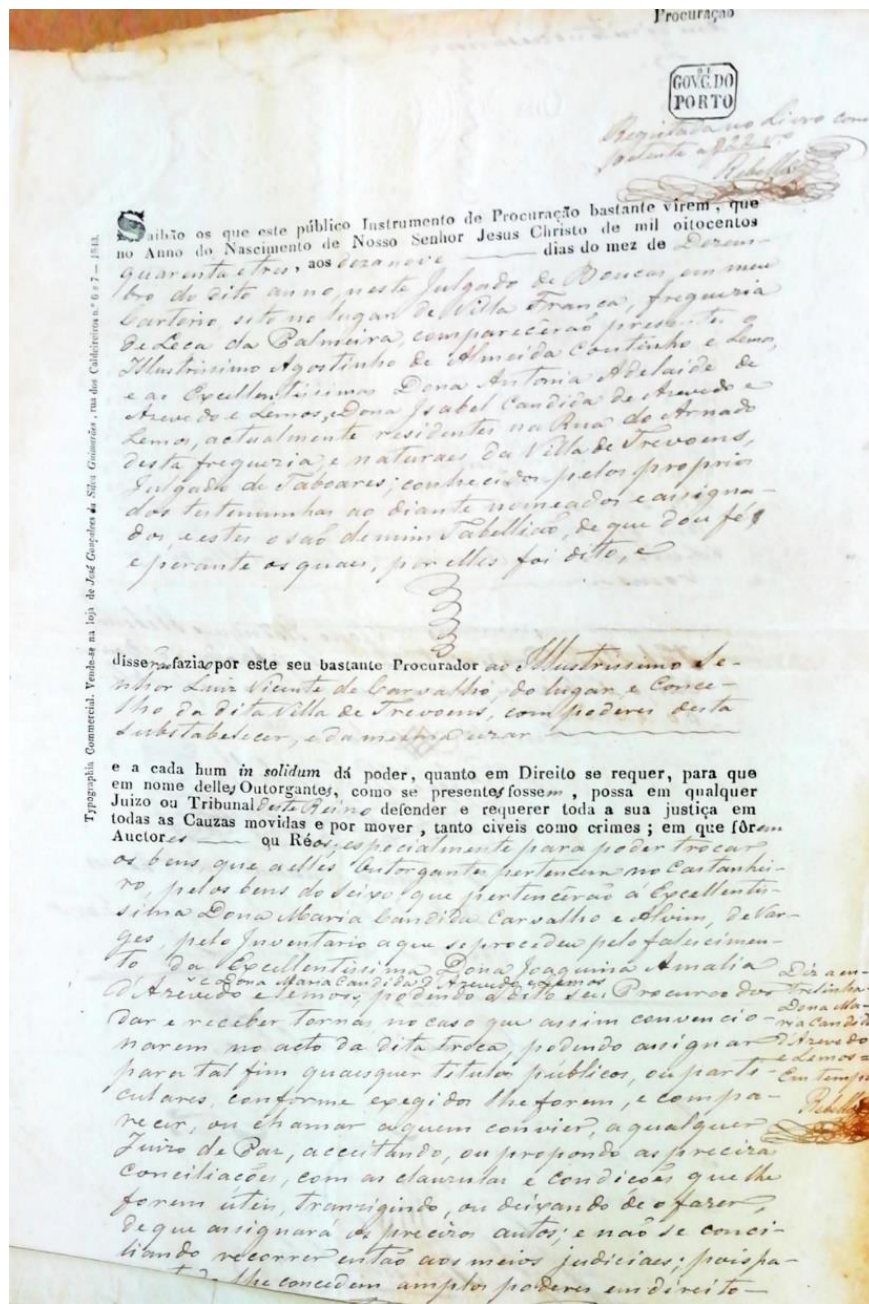 Procuração
GOV. C. DO
PORTO
Registada no Livro com
petente a f 22 vº
Rebello
Saibão os que este público Instrumento de Procuração bastante virem, que
no Anno do Nascimento de Nosso Senhor Jesus Christo de mil oitocentos
quarenta e tres, aos dezanove dias do mez de Dezem-
bro do dito anno, neste Julgado de Bouças, em meu
Cartorio, sito no lugar de Villa Franca, freguezia
de Leça da Palmeira, comparecêrão presentes o
Illustrissimo Agostinho de Almeida Coutinho e Lemos,
e as Excellentissimas Dona Antonia Adelaide de
Azevedo e Lemos, e Dona Isabel Candida de Azevedo e
Lemos, actualmente residentes na Rua do Arnado
desta freguezia, e naturaes da Villa de Trevoens,
Julgado de Taboares; conhecidos pelos proprios
das testemunhas ao diante nomeados e assigna-
dos, e estes o são de mim Tabellião, de que dou fé;
e perante os quaes, por elles foi dito, e
disserão fazião por este seu bastante Procurador ao Illustrissimo Se-
nhor Luiz Vicente de Carvalho, do lugar e Conce-
lho da dita Villa de Trevoens, com poderes desta
substabelecer, e da mesma uzar
e a cada hum in solidum dá poder, quanto em Direito se requer, para que
em nome delles Outorgantes, como se presentes fossem, possa em qualquer
Juizo ou Tribunal deste Reino defender e requerer toda a sua justiça em
todas as Cauzas movidas e por mover, tanto civeis como crimes; em que fôrem
Auctores ou Réos, especialmente para poder trocar
os bens, que a elles Outorgantes pertencem no Castanhei-
ro, pelos bens do Seixo, que pertencêrão á Excellentis-
sima Dona Maria Candida Carvalho e Alvim, de Var-
ges, pelo Inventario a que se procedeu pelo falecimen-
to da Excellentissima Dona Joaquina Amalia
e Dona Maria Candida d'Azevedo e Lemos
d'Azevedo e Lemos, podendo o dito seu Procurador
dar e receber tornas no caso que assim convencio-
narem no acto da dita troca, podendo assignar
para tal fim quaesquer titulos publicos, ou parti-
culares, conforme exegidos lhe forem, e compa-
recer, ou chamar a quem convier, a qualquer
Juizo de Paz, acceitando, ou propondo as precizas
Conciliações, com as clauzulas e condições que lhe
forem úteis, tranzigindo, ou deixando de o fazer,
de que assignará os precizos autos; e não se conci-
liando recorrer então aos meios judiciaes; pois pa-
lhe concedem amplos poderes em direito
Diz a en-
trelinha
Dona Ma-
ria Candida
d'Azevedo
e Lemos =
Em tempo
Rebello
Typographia Commercial. Vende-se na loja de José Gonçalves da Silva Guimarães, rua dos Caldeireiros n.º 6 e 7 — 1843.